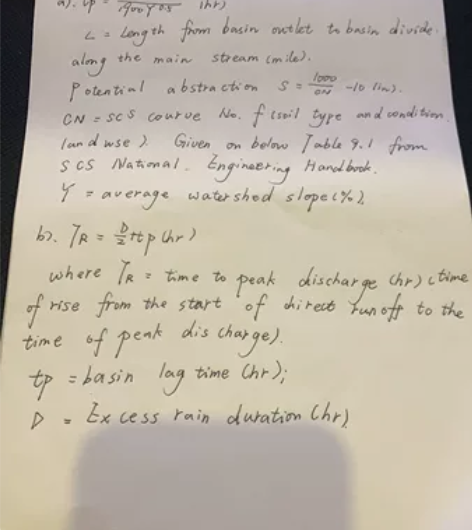 a). tp = 1900 Y^0.5 (hr)
L = Length from basin outlet to basin divide.
along the main stream (mile).
Potential abstraction S = 1000/CN -10 (in).
CN = SCS courve No. f (soil type and condition.
land wse). Given on below Table 9.1 from
SCS National. Engineering Handbook.
Y = average watershed slope (%).
b). TR = D/2 + tp (hr)
where TR = time to peak discharge (hr) (time
of rise from the start of direct runoff to the
time of peak discharge).
tp = basin lag time (hr);
D = Excess rain duration (hr)